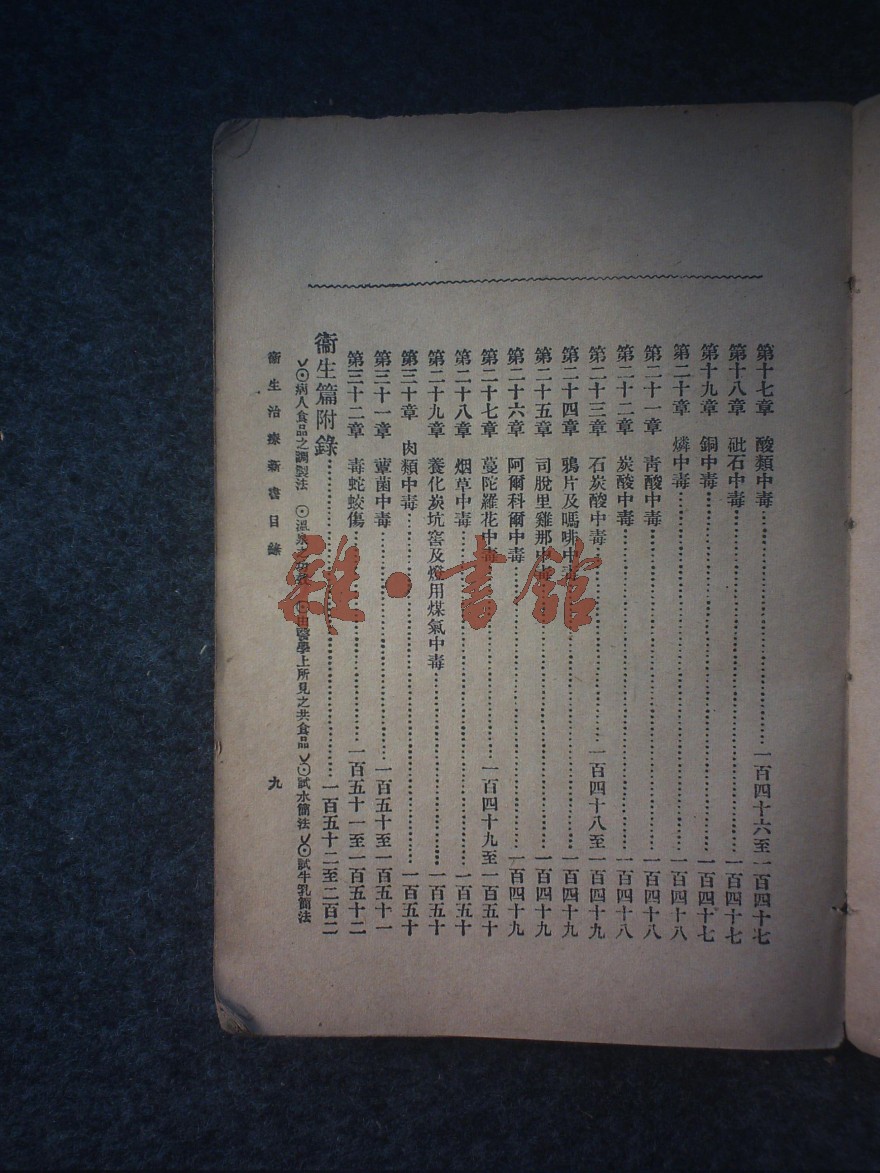 第十七章　酸類中毒……一百四十六至一百四十七
第十八章　砒石中毒……一百四十七
第十九章　銅中毒……一百四十七
第二十章　燐中毒……一百四十八
第二十一章　靑酸中毒……一百四十八
第二十二章　炭酸中毒……一百四十八
第二十三章　石炭酸中毒……一百四十八至一百四十九
第二十四章　鴉片及嗎啡中毒……一百四十九
第二十五章　司脫里雞那中毒……一百四十九
第二十六章　阿爾科爾中毒……一百四十九
第二十七章　蔓陀羅花中毒……一百四十九至一百五十
第二十八章　烟草中毒……一百五十
第二十九章　養化炭坑窖及燈用煤氣中毒……一百五十
第三十章　肉類中毒……一百五十
第三十一章　蕈菌中毒……一百五十至一百五十一
第三十二章　毒蛇蛟傷……一百五十一至一百五十二
衞生篇附錄……一百五十二至二百二
⊙病人食品之調製法　⊙溫泉　⊙由醫學上所見之共食品　⊙試水簡法　⊙試牛乳簡法
衞生治療新書目錄　九
雜·書館